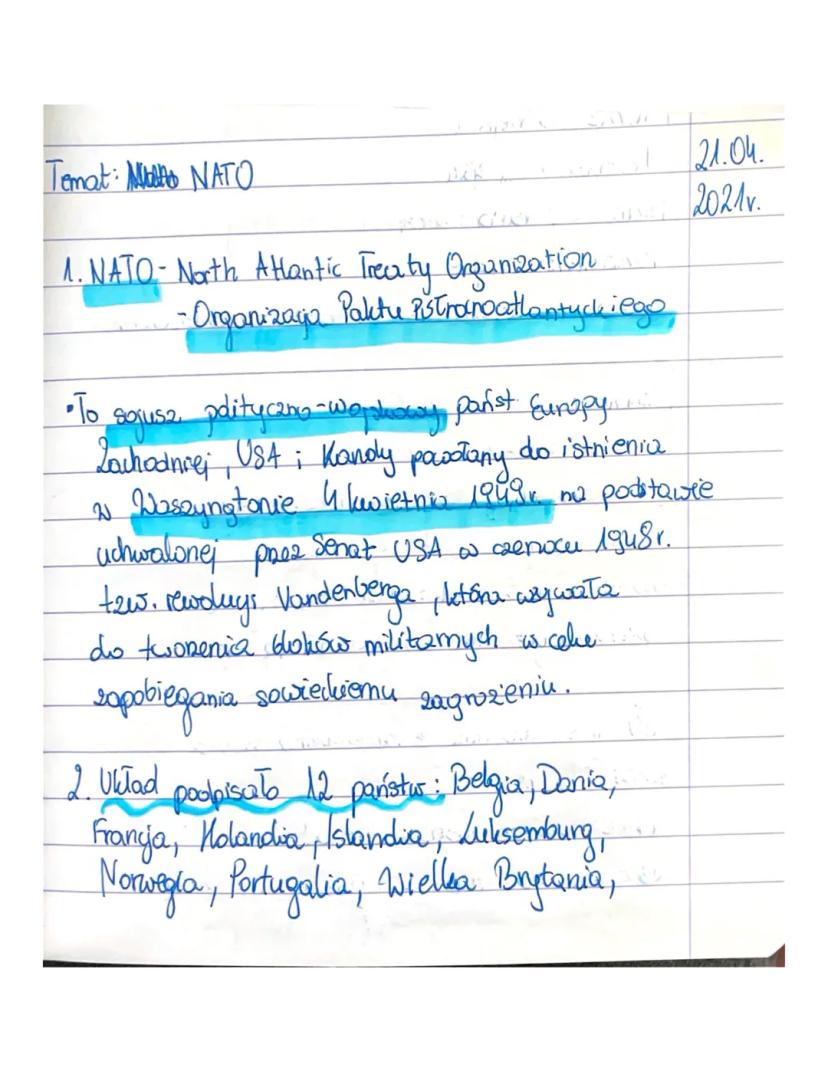 Temat: NATO
21.04.
2021r.
1. NATO - North Atlantic Treaty Organization
- Organizacja Paktu Północnoatlantyckiego
• To sojusz polityczno-wojskowy państ Europy
Zachodniej, USA i Kandy powołany do istnienia
w Waszyngtonie 4 kwietnia 1949r. na podstawie
uchwalonej przez Senat USA w czerwcu 1948r.
tzw. rewolucji Vandenberga, która wzywała
do tworzenia bloków militarnych w celu
zapobiegania sowieckiemu zagrożeniu.
2. Układ podpisało 12 państw: Belgia, Dania,
Francja, Holandia, Islandia, Luksemburg,
Norwegia, Portugalia, Wielka Brytania,